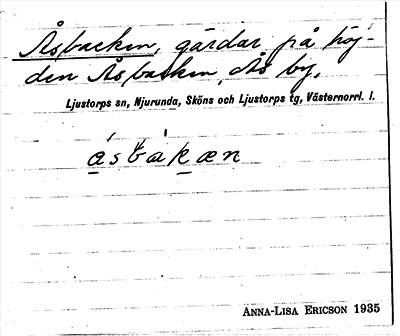 Åsbacken, gärdar på höj-
den Åsbacken, Ås by.
Ljustorps sn, Njurunda, Sköns och Ljustorps tg, Västernorrl. l.
ásbàkæn
ANNA-LISA ERICSON 1935